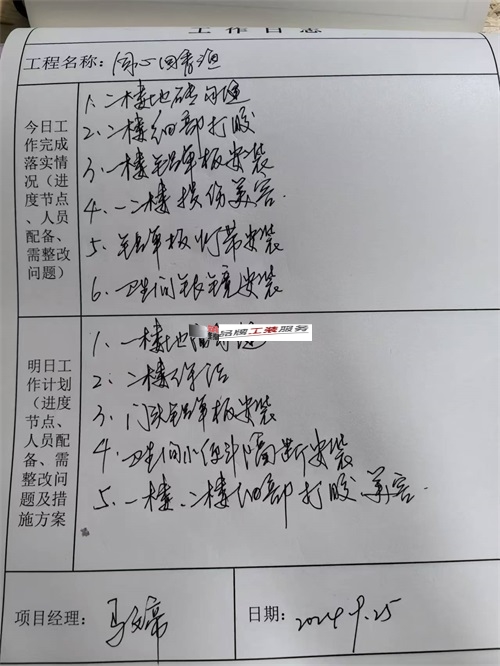 工作日志
工程名称：同心回香池
今日工作完成落实情况（进度节点、人员配备、需整改问题）
1、二楼地砖勾缝
2、二楼细部打胶
3、一楼铝单板安装
4、一二楼损伤美容
5、铝单板灯带安装
6、卫生间银镜安装
品牌工装服务
明日工作计划（进度节点、人员配备、需整改问题及措施方案
1、一楼地
2、二楼保洁
3、门头铝单板安装
4、卫生间小便斗隔断安装
5、一楼、二楼细部打胶美容
项目经理：
日期：2024.9.25